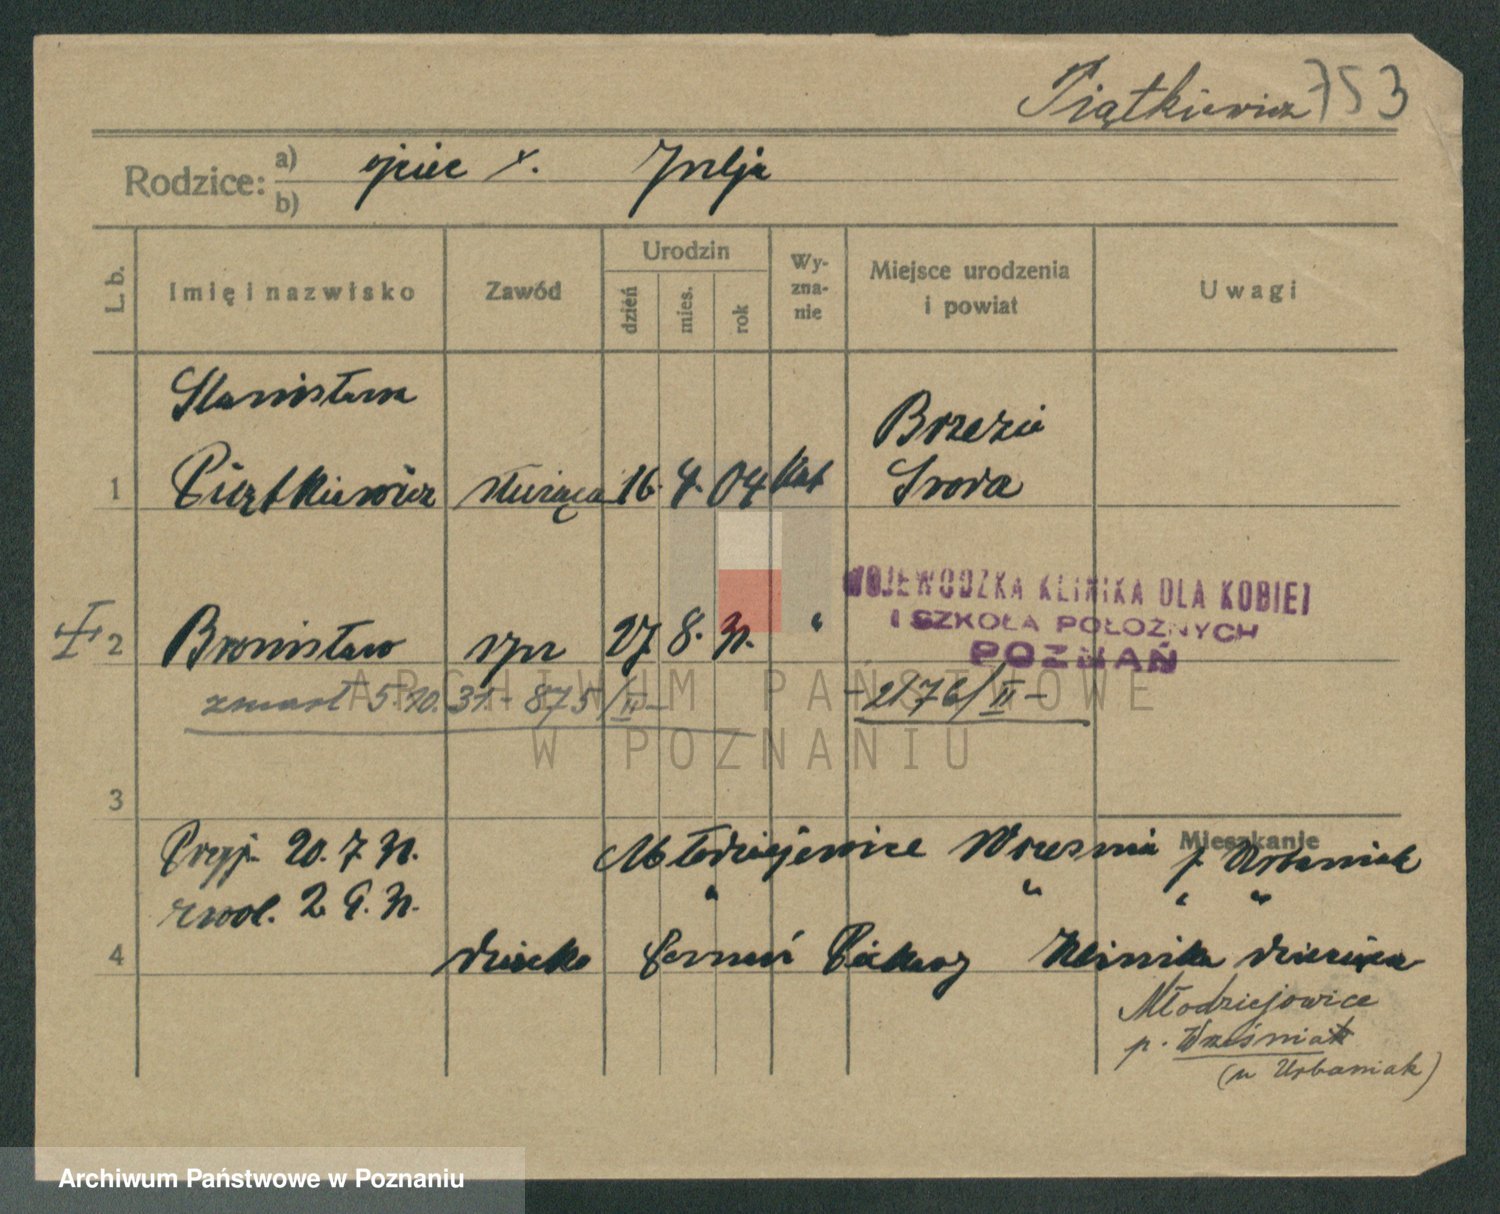 Piątkiewicz 753
Rodzice: a) b) ojciec x.
L. b.
Imię i nazwisko
Zawód
Urodzin
dzień
mies.
rok
Wy-
zna-
nie
Miejsce urodzenia
i powiat
Uwagi
Stanisława
1 Piątkiewicz służąca 16. 4. 04 kat Brzezie
Środa
WOJEWÓDZKA KLINIKA DLA KOBIET
I SZKOŁA POŁOŻNYCH
POZNAŃ
2 Bronisław syn 27. 8. 31. "
zmarł 5.10.31 - 875/II -
- 2176/II -
3
Mieszkanie
Przyj. 20. 7. 31. Młodziejewice Września p. Urbaniak
zwol. 2 9. 31. " " " "
4 dziecko Poznań Klinika dziecięca
Młodziejowice
p. Września
(u Urbaniak)
ARCHIWUM PAŃSTWOWE
W POZNANIU
Archiwum Państwowe w Poznaniu